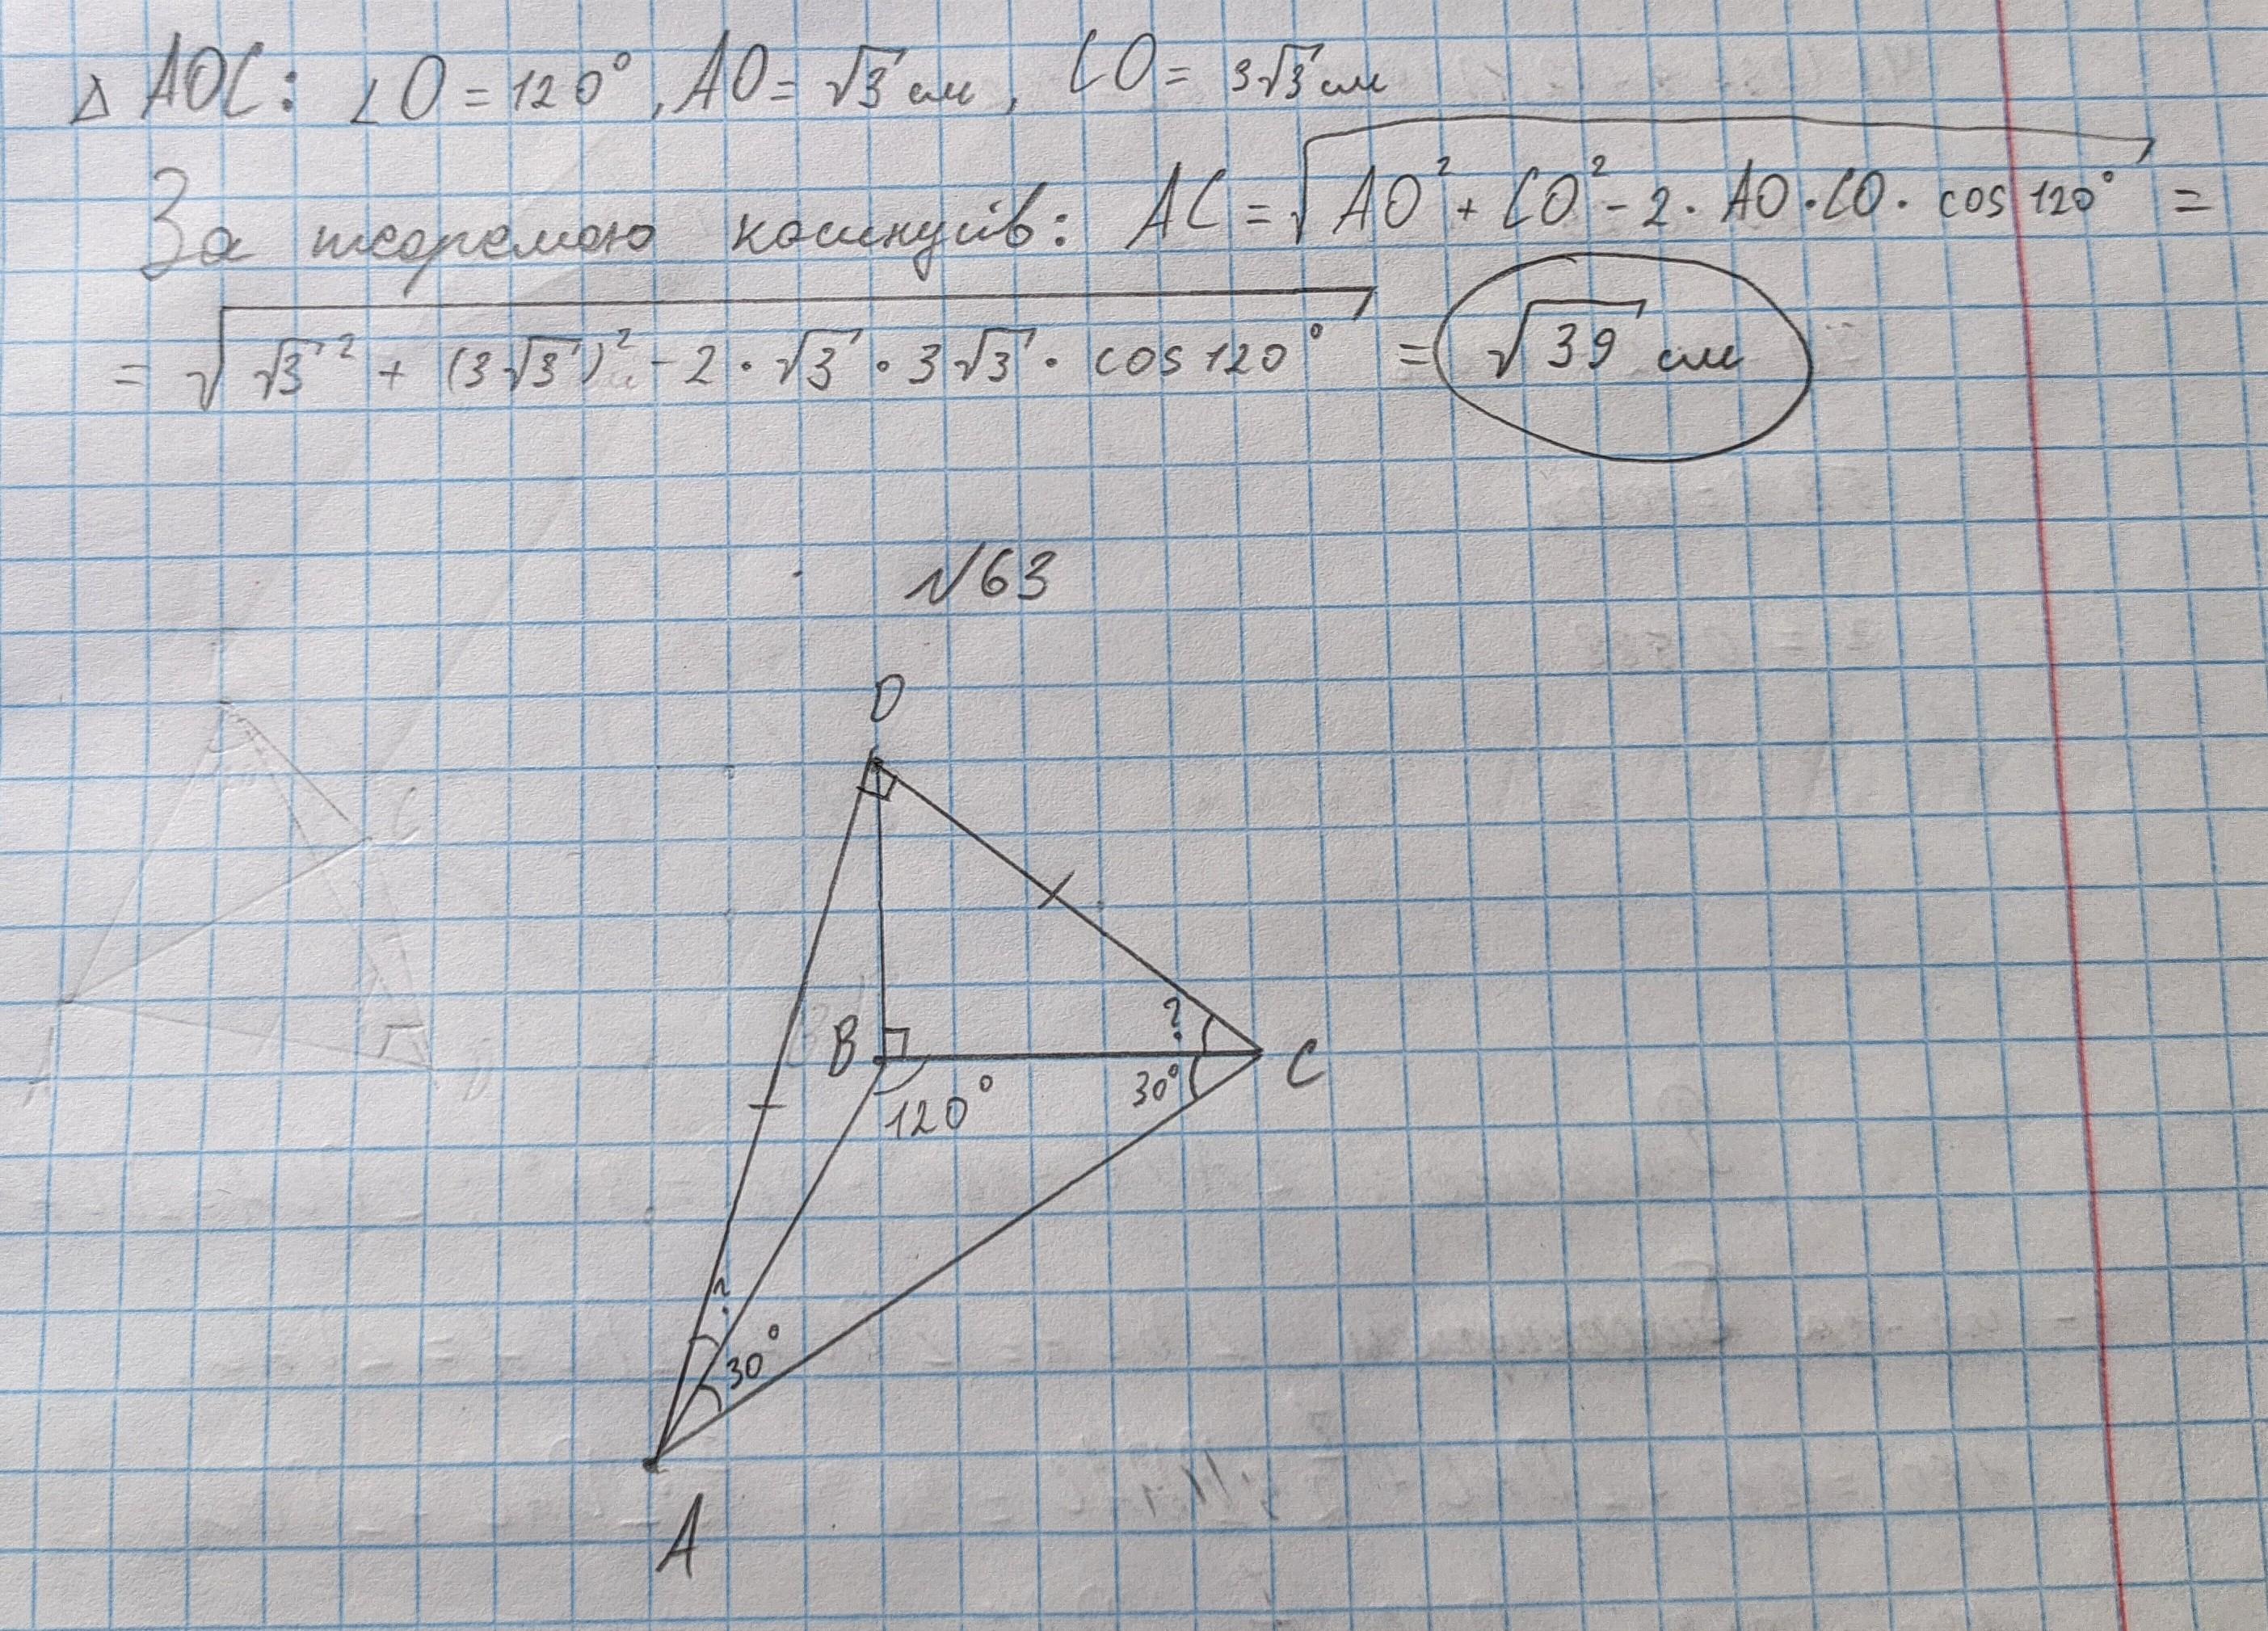 △ AOC: ∠O = 120°, AO = √3 см, CO = 3√3 см
За теоремою косинусів: AC = √(AO² + CO² - 2 · AO · CO · cos 120°) =
= √(√3² + (3√3)² - 2 · √3 · 3√3 · cos 120°) = √39 см
№63
O
?
B
C
120°
30°
?
30°
A